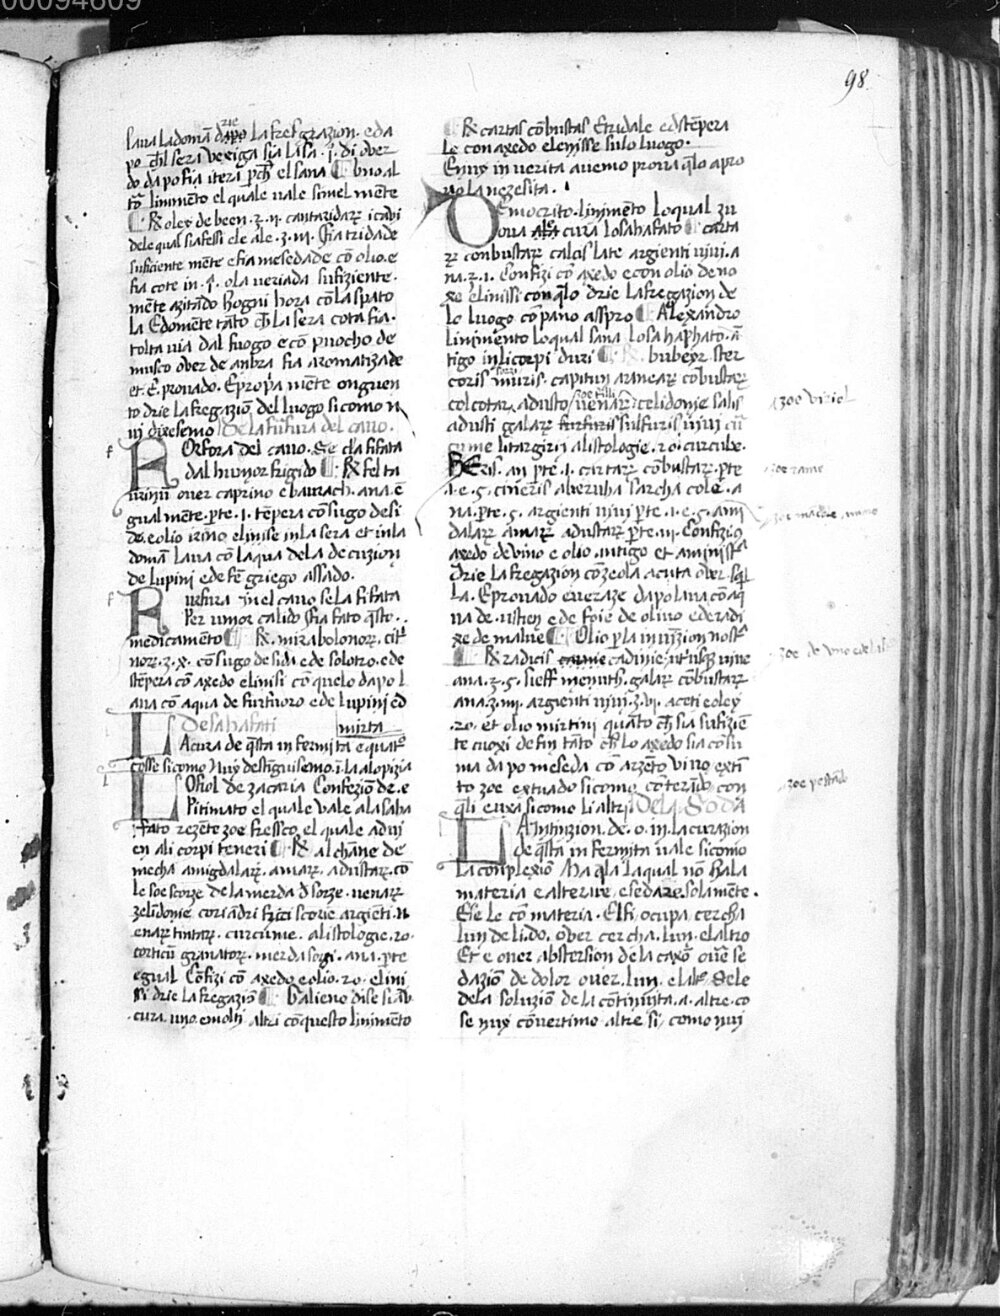 00094609
98
laua la domā dapo la fregrazion. e da
po ch̄l sera vexiga sia lasa. i. di over
do da po sia itera p̄ch̄ el sana ¶ Uno al
tō linimēto el quale uale simel mēte
¶ ℞ oley de been. ʒ. ii. cantaridarꝝ. i cavi
dele qual sia fessi ele ale. ʒ. iii. sia tridade
suficiente mēte e sia mesedade cō olio. e
sia cote in. i. ola ueriada sufiziente.
mēte azitādo hogni hora cō la spato
la Edomēte tāto ch̄ la sera cota sia.
tolta uia dal fuogo e cō puocho de
musco over de anbra sia aromatizade
et. E. prouado. E propīa mēte onguen
to drie la fregaziō del luogo si como n
ui dixesemo De la furfura del cavo.
ROrfora del cauo. Se ela si fata
dal humor frigido ¶ ℞ fel ta
urinū over caprino e baurach. ana. ē
gual mēte. pte. i. tēpera cō sugo de si
da. e olio irino. elinisse in la sera et in la
domā laua cō laqua dela decuzion
de lupini e de fē griego assado.
RUrfura in el cauo se la si fata
per umor calido sia fato q̄sto.
medicamēto ¶ ℞. mirabolonorꝝ. citr̄
norꝝ. ʒ. x. cō sugo de sida e de solotro. e de
stēpera cō axedo elinisi cō quelo da po l
aua cō aqua de furfuoro e de lupini cō
mirta
De sahafati
LA cura de q̄sta infermita e qual
cosse si como Nuy destinguisemo. i. la alopizia
LO fiol de zacaria Confeziō de. e
Pitimato el quale vale a la saha
fato rezēte zoe fressco el quale aduī
en ali corpi teneri ¶ ℞ al chāne de
mecha amigdalarꝝ. amarꝝ. adustarꝝ. cō
le soe scorze de la merda d̄ sorze. uenarꝝ
zelidonie. coriādri sizi scorie argēti. n
enarꝝ tintarꝝ. curcume. alistologie. ro.
corticū granatorꝝ. merda sorzi. ana. pte
egual Cōfizi cō axedo. e olio. ro. elini
si drie la fregaziō ¶ Galieno dise si au
cura. uno. e molti altri cō questo linimēto
¶ ℞ cartas cōbustas E tridale e dstēpera
le con axedo elenisse sulo luogo.
E nuy in uerita auemo proua q̄lo apro
uo la nezesita.
DEmocrito. linimēto lo qual zu
oua cura lo sahafato ¶ carta
rꝝ conbustarꝝ calcis late argienti uiui. a
na. ʒ. i. Confizi cō axedo e con olio de no
xe elinissi con q̄lo drie la fregazion de
lo luogo cō pano asspro ¶ Alexandro
linimēto lo qual sana lo sahaphato. ā
tigo in li corpi duri ¶ ℞. bubeyr. ster
coris muris. capitun aranearꝝ cōbustarꝝ
colcotarꝝ adusto uenarꝝ celidonie salis
adusti galarꝝ sulfuris uiui cū
cume litargirij alistologie. ro. cucurbe.
℞ eris. an pte. i. cartarꝝ cōbustarꝝ. pte
.i. e. s. cineris abernha sarcha cole. a
na. pte. s. argienti uiui pte. i. e. s. ami
dalarꝝ amarꝝ adustarꝝ pte. iii. Confizi cō
axedo de vino e olio. antigo et aminista
drie la fregazion cō zeola acuta over sq̄l
la. E prouado e ueraze da po laua cō aq̄
na de ustiey e de foie de oliuo e de radi
xe de malue ¶ Olio p la inuizion nostrª
¶ ℞ radicis cadinie, utrisq̄ uine
ana. ʒ. s. sieff memith. galarꝝ cōbustarꝝ
ana. ʒ. iii. argienti uiui. ʒ. vi. aceti e oley
.ro. et olio mirtini quāto ch̄ sia sufiziē
te cuoxi de fin tāto ch̄ lo axedo sia cōsu
ma da po meseda cō arzēto vino extī
to zoe extuado si como cōterido con
q̄li e uxa si como li altri De la soda
LA intinzion. de. o. in. la curazion
de q̄sta infermita uale si como
la complexiō Ma q̄la la qual nō hala
materia e altera e sedare solamēte.
E se le cō materia. El si ocupa cercha
lun de li. do. over cercha. lun. el altro
Et e over abstersion de la caxō oue se
daziō de dolor over. lun. e laltº. Se le
dela soluziō de la cōtinuita. a. altre. co
se nuy cōuertimo altre si, como nui
zoe viriol
zoe rame
zoe de vino e de late
zoe pestado